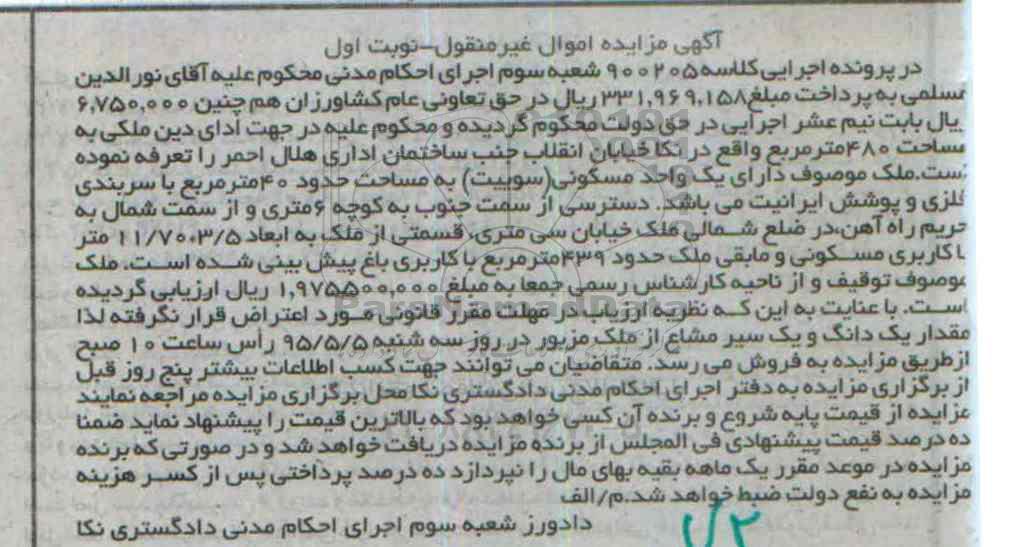 آگهی مزایده اموال غیرمنقول-نوبت اول
در پرونده اجرایی کلاسه ۹۰۰۲۰۵ شعبه سوم اجرای احکام مدنی محکوم علیه آقای نورالدین
مسلمی به پرداخت مبلغ ۳۳۱,۹۶۹,۱۵۸ ریال در حق تعاونی عام کشاورزان هم چنین ۶,۷۵۰,۰۰۰
ریال بابت نیم عشر اجرایی در حق دولت محکوم گردیده و محکوم علیه در جهت ادای دین ملکی به
مساحت ۴۸۰مترمربع واقع در نکا خیابان انقلاب جنب ساختمان اداری هلال احمر را تعرفه نموده
است.ملک موصوف دارای یک واحد مسکونی(سوییت) به مساحت حدود ۴۰مترمربع با سربندی
فلزی و پوشش ایرانیت می باشد. دسترسی از سمت جنوب به کوچه ۶متری و از سمت شمال به
حریم راه آهن،در ضلع شمالی ملک خیابان سی متری، قسمتی از ملک به ابعاد ۱۱/۷۰،۳/۵ متر
با کاربری مسکونی و مابقی ملک حدود ۴۳۹مترمربع با کاربری باغ پیش بینی شده است. ملک
موصوف توقیف و از ناحیه کارشناس رسمی جمعا به مبلغ ۱,۹۷۵۵۰۰,۰۰۰ ریال ارزیابی گردیده
است. با عنایت به این که نظریه ارزیاب در مهلت مقرر قانونی مورد اعتراض قرار نگرفته لذا
مقدار یک دانگ و یک سیر مشاع از ملک مزبور در روز سه شنبه ۹۵/۵/۵ رأس ساعت ۱۰ صبح
ازطریق مزایده به فروش می رسد. متقاضیان می توانند جهت کسب اطلاعات بیشتر پنج روز قبل
از برگزاری مزایده به دفتر اجرای احکام مدنی دادگستری نکا محل برگزاری مزایده مراجعه نمایند
مزایده از قیمت پایه شروع و برنده آن کسی خواهد بود که بالاترین قیمت را پیشنهاد نماید ضمنا
ده درصد قیمت پیشنهادی فی المجلس از برنده مزایده دریافت خواهد شد و در صورتی که برنده
مزایده در موعد مقرر یک ماهه بقیه بهای مال را نپردازد ده درصد پرداختی پس از کسر هزینه
مزایده به نفع دولت ضبط خواهد شد.م/الف
دادورز شعبه سوم اجرای احکام مدنی دادگستری نکا
ParsNamadData